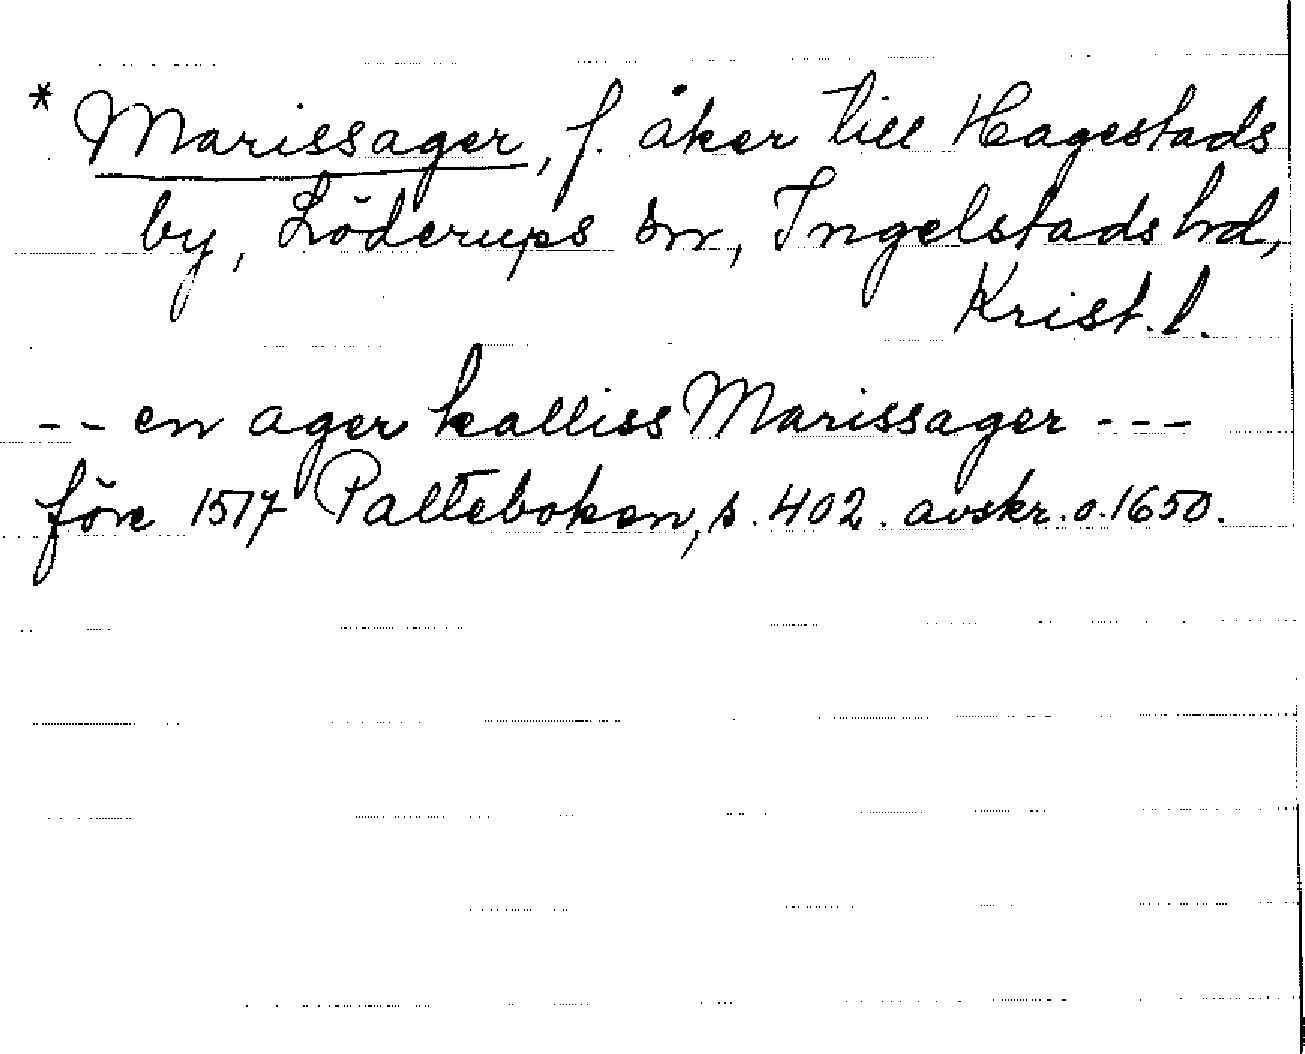 * Marissager, f. åker till Hagestads
by, Löderups sn, Ingelstads hd,
Krist. l.
-- en ager kalliss Marissager ---
före 1517 Palteboken, s. 402. avskr. o. 1650.